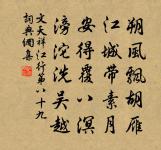 朔風飄胡雁
江城帶素月
安得覆八溟
滂沱洗吳越
文天祥江行第八十九
詞典網